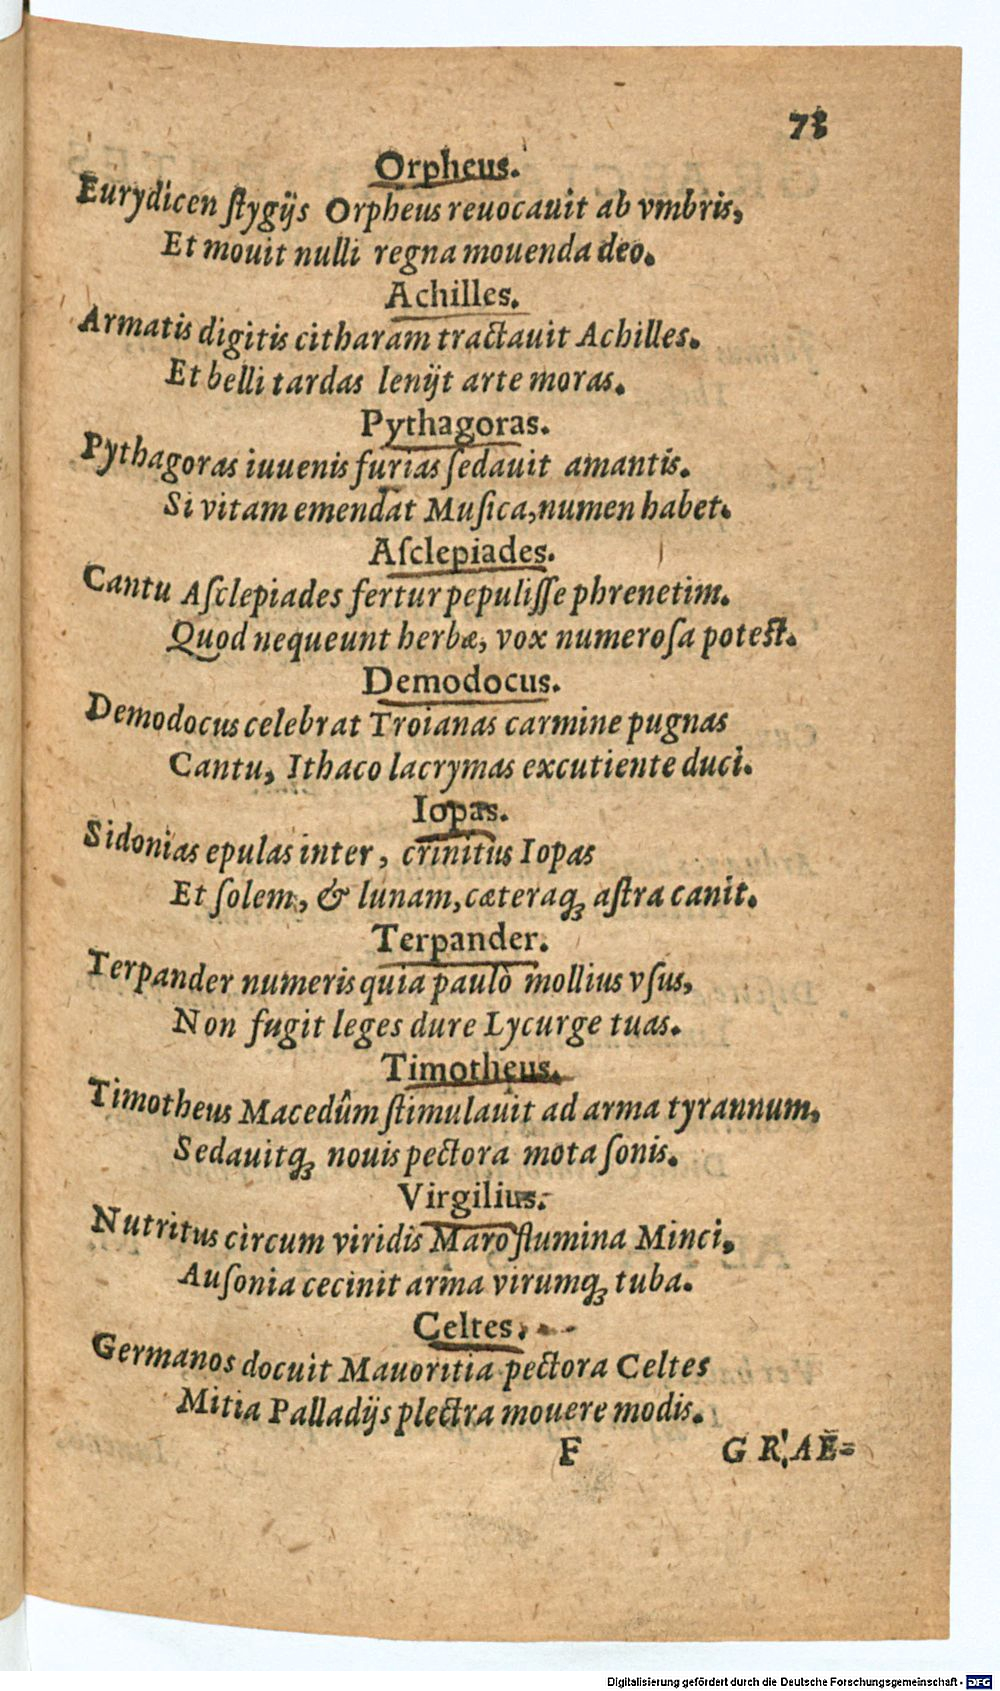 73
Orpheus.
Eurydicen ſtygijs Orpheus reuocauit ab vmbris,
Et mouit nulli regna mouenda deo.
Achilles.
Armatis digitis citharam tractauit Achilles.
Et belli tardas lenijt arte moras.
Pythagoras.
Pythagoras iuuenis furias ſedauit amantis.
Si vitam emendat Muſica, numen habet.
Aſclepiades.
Cantu Aſclepiades fertur pepuliſſe phrenetim.
Quod nequeunt herbæ, vox numeroſa poteſt.
Demodocus.
Demodocus celebrat Troianas carmine pugnas
Cantu, Ithaco lacrymas excutiente duci.
Iopas.
Sidonias epulas inter, crinitus Iopas
Et ſolem, & lunam, cæteraq́ꝫ aſtra canit.
Terpander.
Terpander numeris quia paulò mollius vſus,
Non fugit leges dure Lycurge tuas.
Timotheus.
Timotheus Macedûm ſtimulauit ad arma tyrannum,
Sedauitq́ꝫ nouis pectora mota ſonis.
Virgilius.
Nutritus circum viridis Maro flumina Minci,
Auſonia cecinit arma virumq́ꝫ tuba.
Celtes.
Germanos docuit Mauoritia pectora Celtes
Mitia Palladijs plectra mouere modis.
F GRAE=
Digitalisierung gefördert durch die Deutsche Forschungsgemeinschaft - DFG